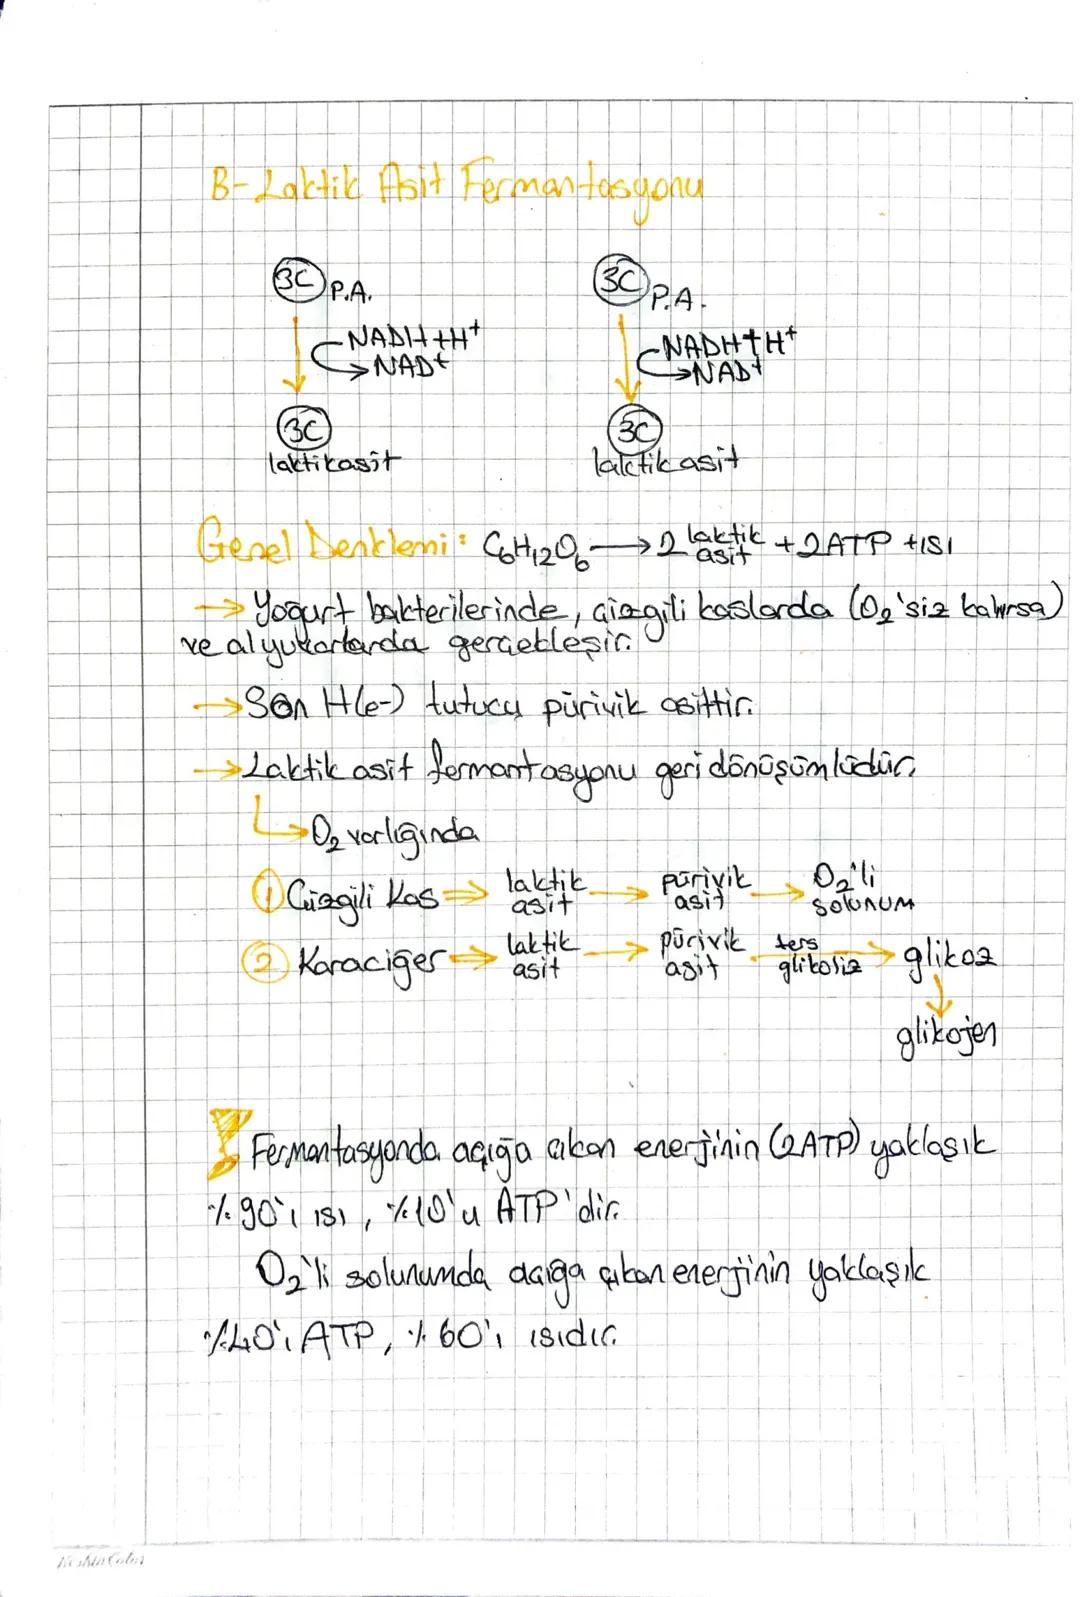 B- Laktik Asit Fermantasyonu
3C P.A. 3C P.A.
NADH+H⁺ NADH+H⁺
NAD⁺ NAD⁺
3C 3C
laktik asit laktik asit
Genel Denklemi: C₆H₁₂O₆ → 2 laktik asit + 2ATP + ısı
→ Yoğurt bakterilerinde, çizgili kaslarda (O₂'siz kalırsa)
ve alyuvarlarda gerçekleşir.
→ Son H(e-) tutucu pürivik asittir.
→ Laktik asit fermantasyonu geri dönüşümlüdür.
→ O₂ varlığında
① Çizgili Kas ⇒ laktik asit → pürivik asit → O₂'li solunum
② Karaciğer ⇒ laktik asit → pürivik asit ters glikoliz → glikoz
↓
glikojen
! Fermantasyonda açığa çıkan enerjinin (2ATP) yaklaşık
%90'ı ısı, %10'u ATP'dir.
O₂'li solunumda açığa çıkan enerjinin yaklaşık
%40'ı ATP, %60'ı ısıdır.
Keskin Color